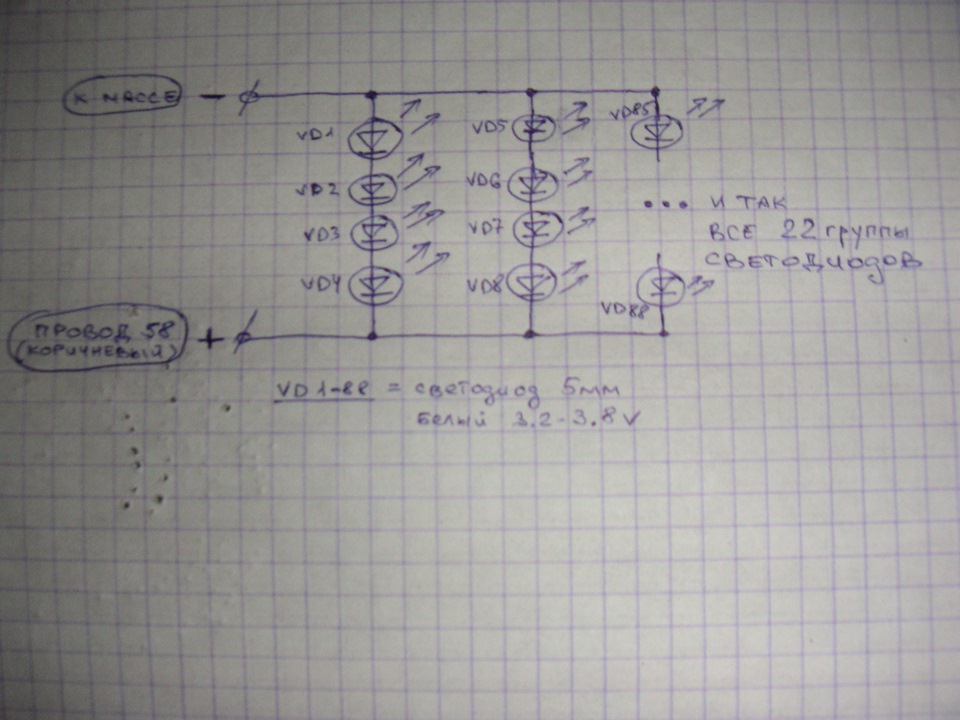 К МАССЕ -
VD1
VD5
VD85
VD2
VD6
... И ТАК
ВСЕ 22 группы
СВЕТОДИОДОВ
VD3
VD7
VD4
VD8
VD88
ПРОВОД 58
(КОРИЧНЕВЫЙ) +
VD1-88 = светодиод 5мм
Белый 3.2-3.8V